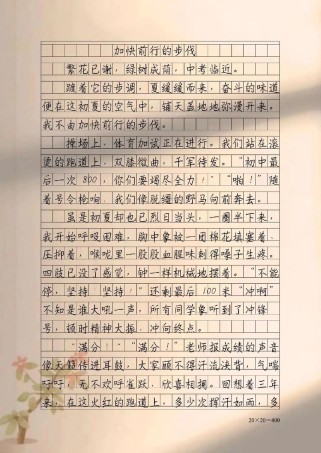 加快前行的步伐
繁花已谢，绿树成荫，中考临近。
踏着它的步调，夏缓缓而来，奋斗的味道
便在这初夏的空气中，铺天盖地地弥漫开来。
我不由加快前行的步伐。
操场上，体育加试正在进行。我们站在滚
烫的跑道上，双膝微曲，千军待发。“初中最
后一次800，你们要竭尽全力！”“啪！”随
着号令枪响，我们像脱缰的野马向前奔去。
虽是初夏却也已烈日当头，一圈半下来，
我开始呼吸困难，胸中象被一团棉花填塞着、
压抑着，喉咙里一股股血腥味刺得嗓子生疼。
四肢已没了感觉，钟一样机械地摆着。“不能
停，坚持！坚持！”还剩最后100米“冲啊”
不知是谁大吼一声，所有同学象听到了冲锋
号，顿时精神大振，冲向终点。
“满分！”“满分！”老师报成绩的声音
像天籁传进耳鼓，大家顾不得汗流浃背，气喘
吁吁，无不欢呼雀跃，欣喜相拥。回想着三年
来，在这火红的跑道上，多少次挥汗如雨，多
20×20=400